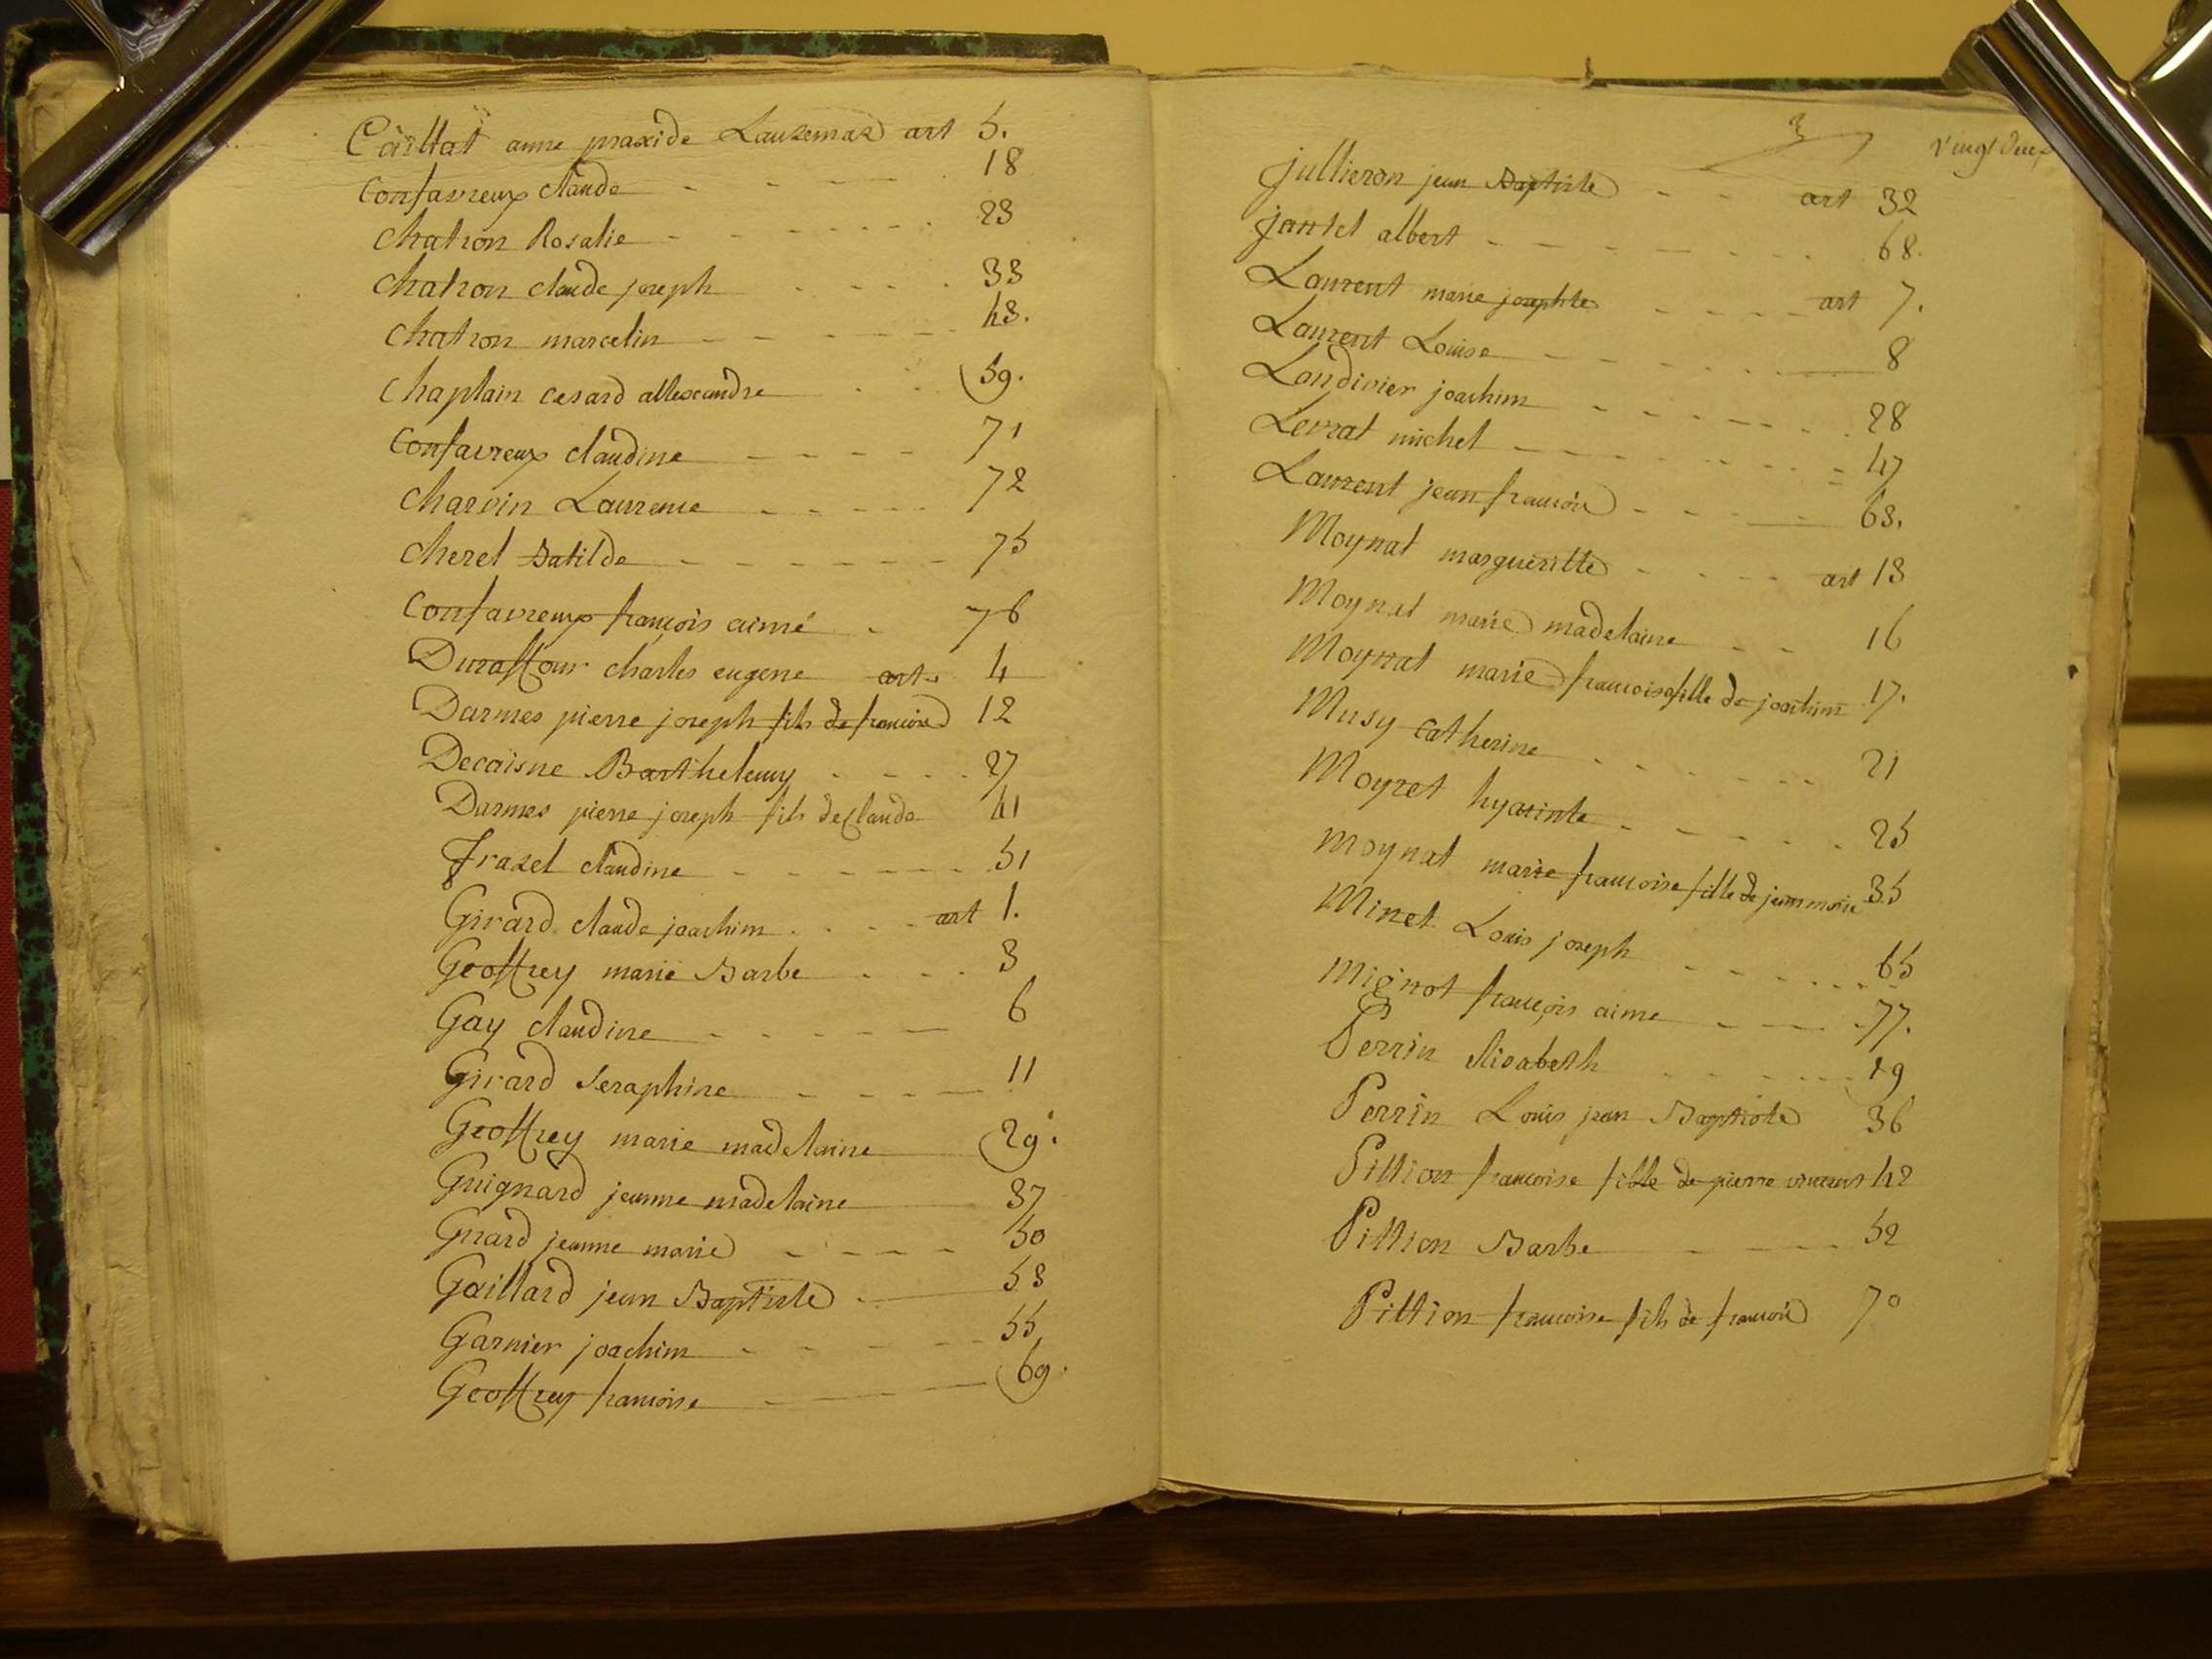 Caillat anne praxide Lauzemaz art 5.
Confavreux claude 18
Chatron Rosalie 23
Chatron claude joseph 33
Chatron marcelin 43.
Chaplain cesard allexandre 59.
Confavreux claudine 71
Charvin Laurence 72
Cheret Batilde 75
Confavreux francois aimé 76
Duraffour charles eugene art. 4
Darmes pierre joseph fils de francois 12
Decaisne Barthelemy 27
Darmes pierre joseph fils de claude 41
Frazet claudine 51
Girard claude joachim art 1.
Geoffrey marie Barbe 3
Gay claudine 6
Girard Seraphine 11
Geoffrey marie madelaine 29.
Guignard jeanne madelaine 37
Girard jeanne marie 50
Gaillard jean Baptiste 53
Garnier joachim 55
Geoffrey francoise 69.
3 vingt deux
jullieron jean Baptiste art 32
jantet albert 68.
Laurent marie josephte art 7.
Laurent Louise 8
Landivier joachim 28
Levrat michel 47
Laurent jean francois 63.
Moynat margueritte art 13
Moynat marie madelaine 16
Moynat marie francoise fille de joachim 17.
Musy catherine 21
Moyret hyacinte 25
Moynat marie francoise fille de jean marie 35
Minet Louis joseph 65
Mignot françois aime 77.
Perrin Elisabeth 19
Perrin Louis jean Baptiste 36
Pittion francoise fille de pierre vincent 42
Pittion Barbe 52
Pittion francoise fils de francois 70